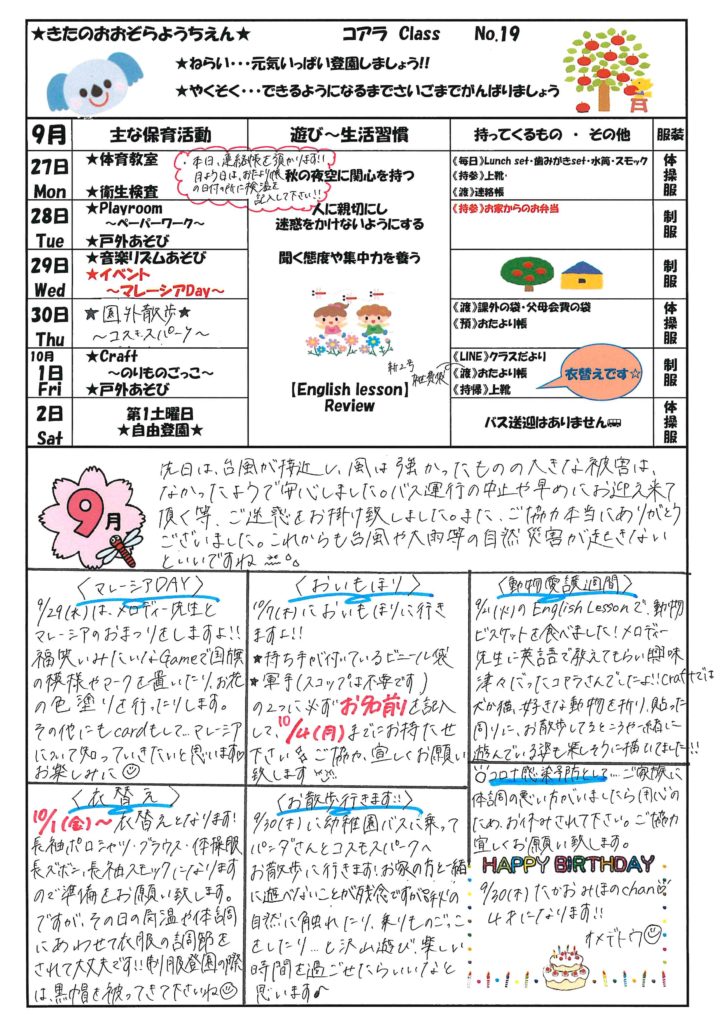 ★きたのおおぞらようちえん★ コアラ Class No.19
★ねらい・・・元気いっぱい登園しましょう!!
★やくそく・・・できるようになるまでさいごまでがんばりましょう
9月 主な保育活動 遊び～生活習慣 持ってくるもの ・ その他 服装
27日 Mon
★体育教室
★衛生検査
・本日、連絡帳を預かります!!
月よう日は、おたより帳
の日付の所に検温を
記入して下さい!!
秋の夜空に関心を持つ
《毎日》Lunch set・歯みがきset・水筒・スモック
《持参》上靴・
《渡》連絡帳
体操服
28日 Tue
★Playroom
～ペーパーワーク～
★戸外あそび
人に親切にし
迷惑をかけないようにする
《持参》お家からのお弁当
制服
29日 Wed
★音楽リズムあそび
★イベント
～マレーシアDay～
聞く態度や集中力を養う
制服
30日 Thu
★園外散歩★
～コスモスパーク～
《渡》課外の袋・父母会費の袋
《預》おたより帳
体操服
10月
1日 Fri
★Craft
～のりものごっこ～
★戸外あそび
【English lesson】
Review
《LINE》クラスだより
《渡》おたより帳
《持帰》上靴
衣替えです☆
制服
2日 Sat
第1土曜日
★自由登園★
バス送迎はありません
体操服
9月
先日は、台風が接近し、風は強かったものの大きな被害は、
なかったようで安心しました。バス運行の中止や早めにお迎え来て
頂く等、ご迷惑をお掛け致しました。また、ご協力本当にありがとう
ございました。これからも台風や大雨等の自然災害が起きない
といいですね
〈マレーシアDAY〉
9/29(水)は、メロディー先生と
マレーシアのおまつりをしますよ!!
福笑いみたいなGameで国旗
の模様やマークを置いたり、お花
の色塗りを行ったりします。
その他にもcardもして…マレーシア
について知っていきたいと思います♡
お楽しみに☺
〈おいもほり〉
10/7(木)においもほりに行き
ますよ!!
★持ち手が付いているビニール袋
★軍手(スコップは不要です)
の2つに必ずお名前を記入
して、10/4(月)までにお持たせ
下さい。ご協力、宜しくお願い
致します
〈動物愛護週間〉
9/21(火)のEnglish Lessonで、動物
ビスケットを食べました!メロディー
先生に英語で教えてもらい興味
津々だったコアラさんでしたよ!!Craftでは
犬か猫、好きな動物を折り、貼った
周りに、お散歩してるところや一緒に
遊んでいる姿も楽しそうに描いてました!!
コロナ感染予防として…ご家族に
体調の悪い方がいましたら用心の
ため、お休みされて下さい。ご協力
宜しくお願い致します。
〈衣替え〉
10/1(金)～衣替えとなります!
長袖ポロシャツ・ブラウス・体操服
長ズボン、長袖スモックになります
ので準備をお願い致します。
ですが、その日の気温や体調
にあわせて衣服の調節を
されて大丈夫です!!制服登園の際
は、黒帽を被ってきて下さいね☺
〈お散歩行きます!!〉
9/30(木)に幼稚園バスに乗って
パンダさんとコスモスパークへ
お散歩に行きます!お家の方と一緒
に遊べないことが残念ですが、
自然に触れたり、乗りものごっこ
をしたり…と沢山遊び、楽しい
時間を過ごせたらいいなと
思います♪
HAPPY BIRTHDAY
9/30(木)たかおみほのchan
4才になります!!
オメデトウ☺